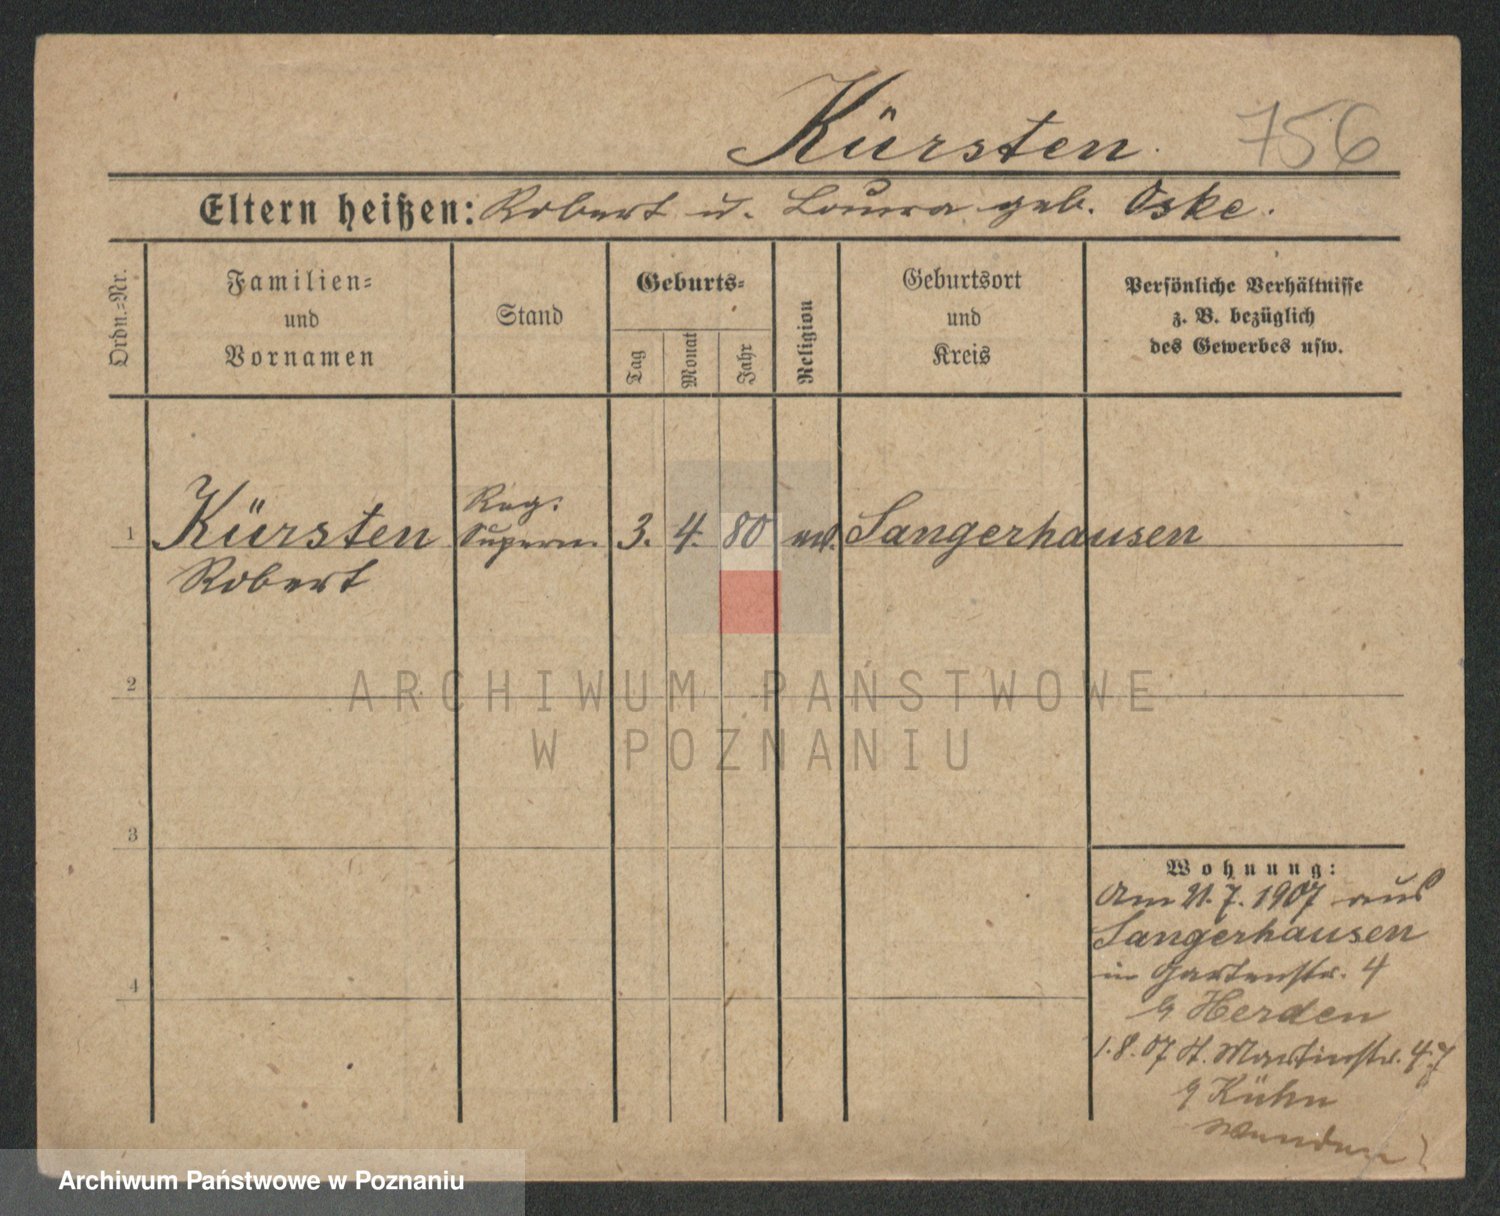 Kürsten.
756
Eltern heißen: Robert u. Laura geb. Oske.
Ordn.-Nr.
Familien-
und
Vornamen
Stand
Geburts-
Tag
Monat
Jahr
Religion
Geburtsort
und
Kreis
Persönliche Verhältnisse
z. B. bezüglich
des Gewerbes usw.
1
Kürsten
Robert
Reg.
Supern.
3. 4. 80
ev.
Sangerhausen
2
3
4
Wohnung:
Am 21.7.1907 aus
Sangerhausen
in Gartenstr. 4
Herden
1.8.07 St. Martinstr. 47
Kühn
ARCHIWUM PAŃSTWOWE
W POZNANIU
Archiwum Państwowe w Poznaniu